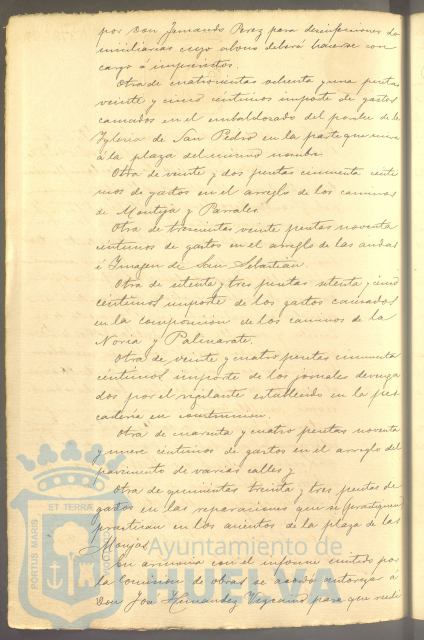 por Don Fernando Perez para desinfecciones do
miciliarias cuyo abono deberá hacerse con
cargo á imprevistos.
Otra de cuatrocientas ochenta y una pesetas
veinte y cinco céntimos importe de gastos
causados en el embaldosado del porche de la
Iglesia de San Pedro en la parte que mira
á la plaza del mismo nombre.
Otra de veinte y dos pesetas cincuenta cénti
mos de gastos en el arreglo de los caminos
de Montija y Parrales.
Otra de trescientas veinte pesetas noventa
céntimos de gastos en el arreglo de las andas
é Imagen de San Sebastián.
Otra de setenta y tres pesetas setenta y cinco
céntimos importe de los gastos causados
en la composición de los caminos de la
Noria y Palmarate.
Otra de veinte y cuatro pesetas cincuenta
céntimos importe de los jornales devenga
dos por el vigilante establecido en la pes
cadería en
Otra de cuarenta y cuatro pesetas noventa
y nueve céntimos de gastos en el arreglo del
pavimento de varias calles y
Otra de quinientas treinta y tres pesetas de
gastos en las reparaciones que se
practican en los asientos de la plaza de las
Monjas.
En armonía con el informe emitido por
la Comisión de obras se acordó autorizar á
Don José Hernandez para que
Ayuntamiento de
HUELVA
PORTUS MARIS
ET TERRAE
CUSTODIA